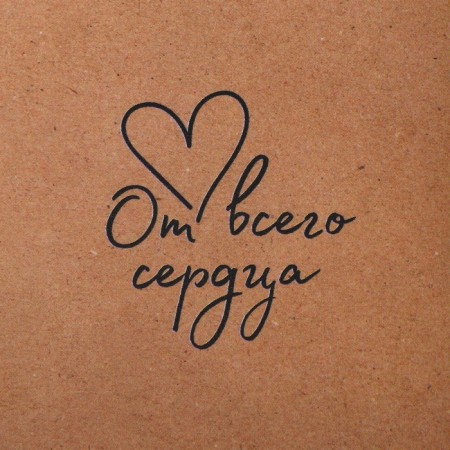 От всего
сердца